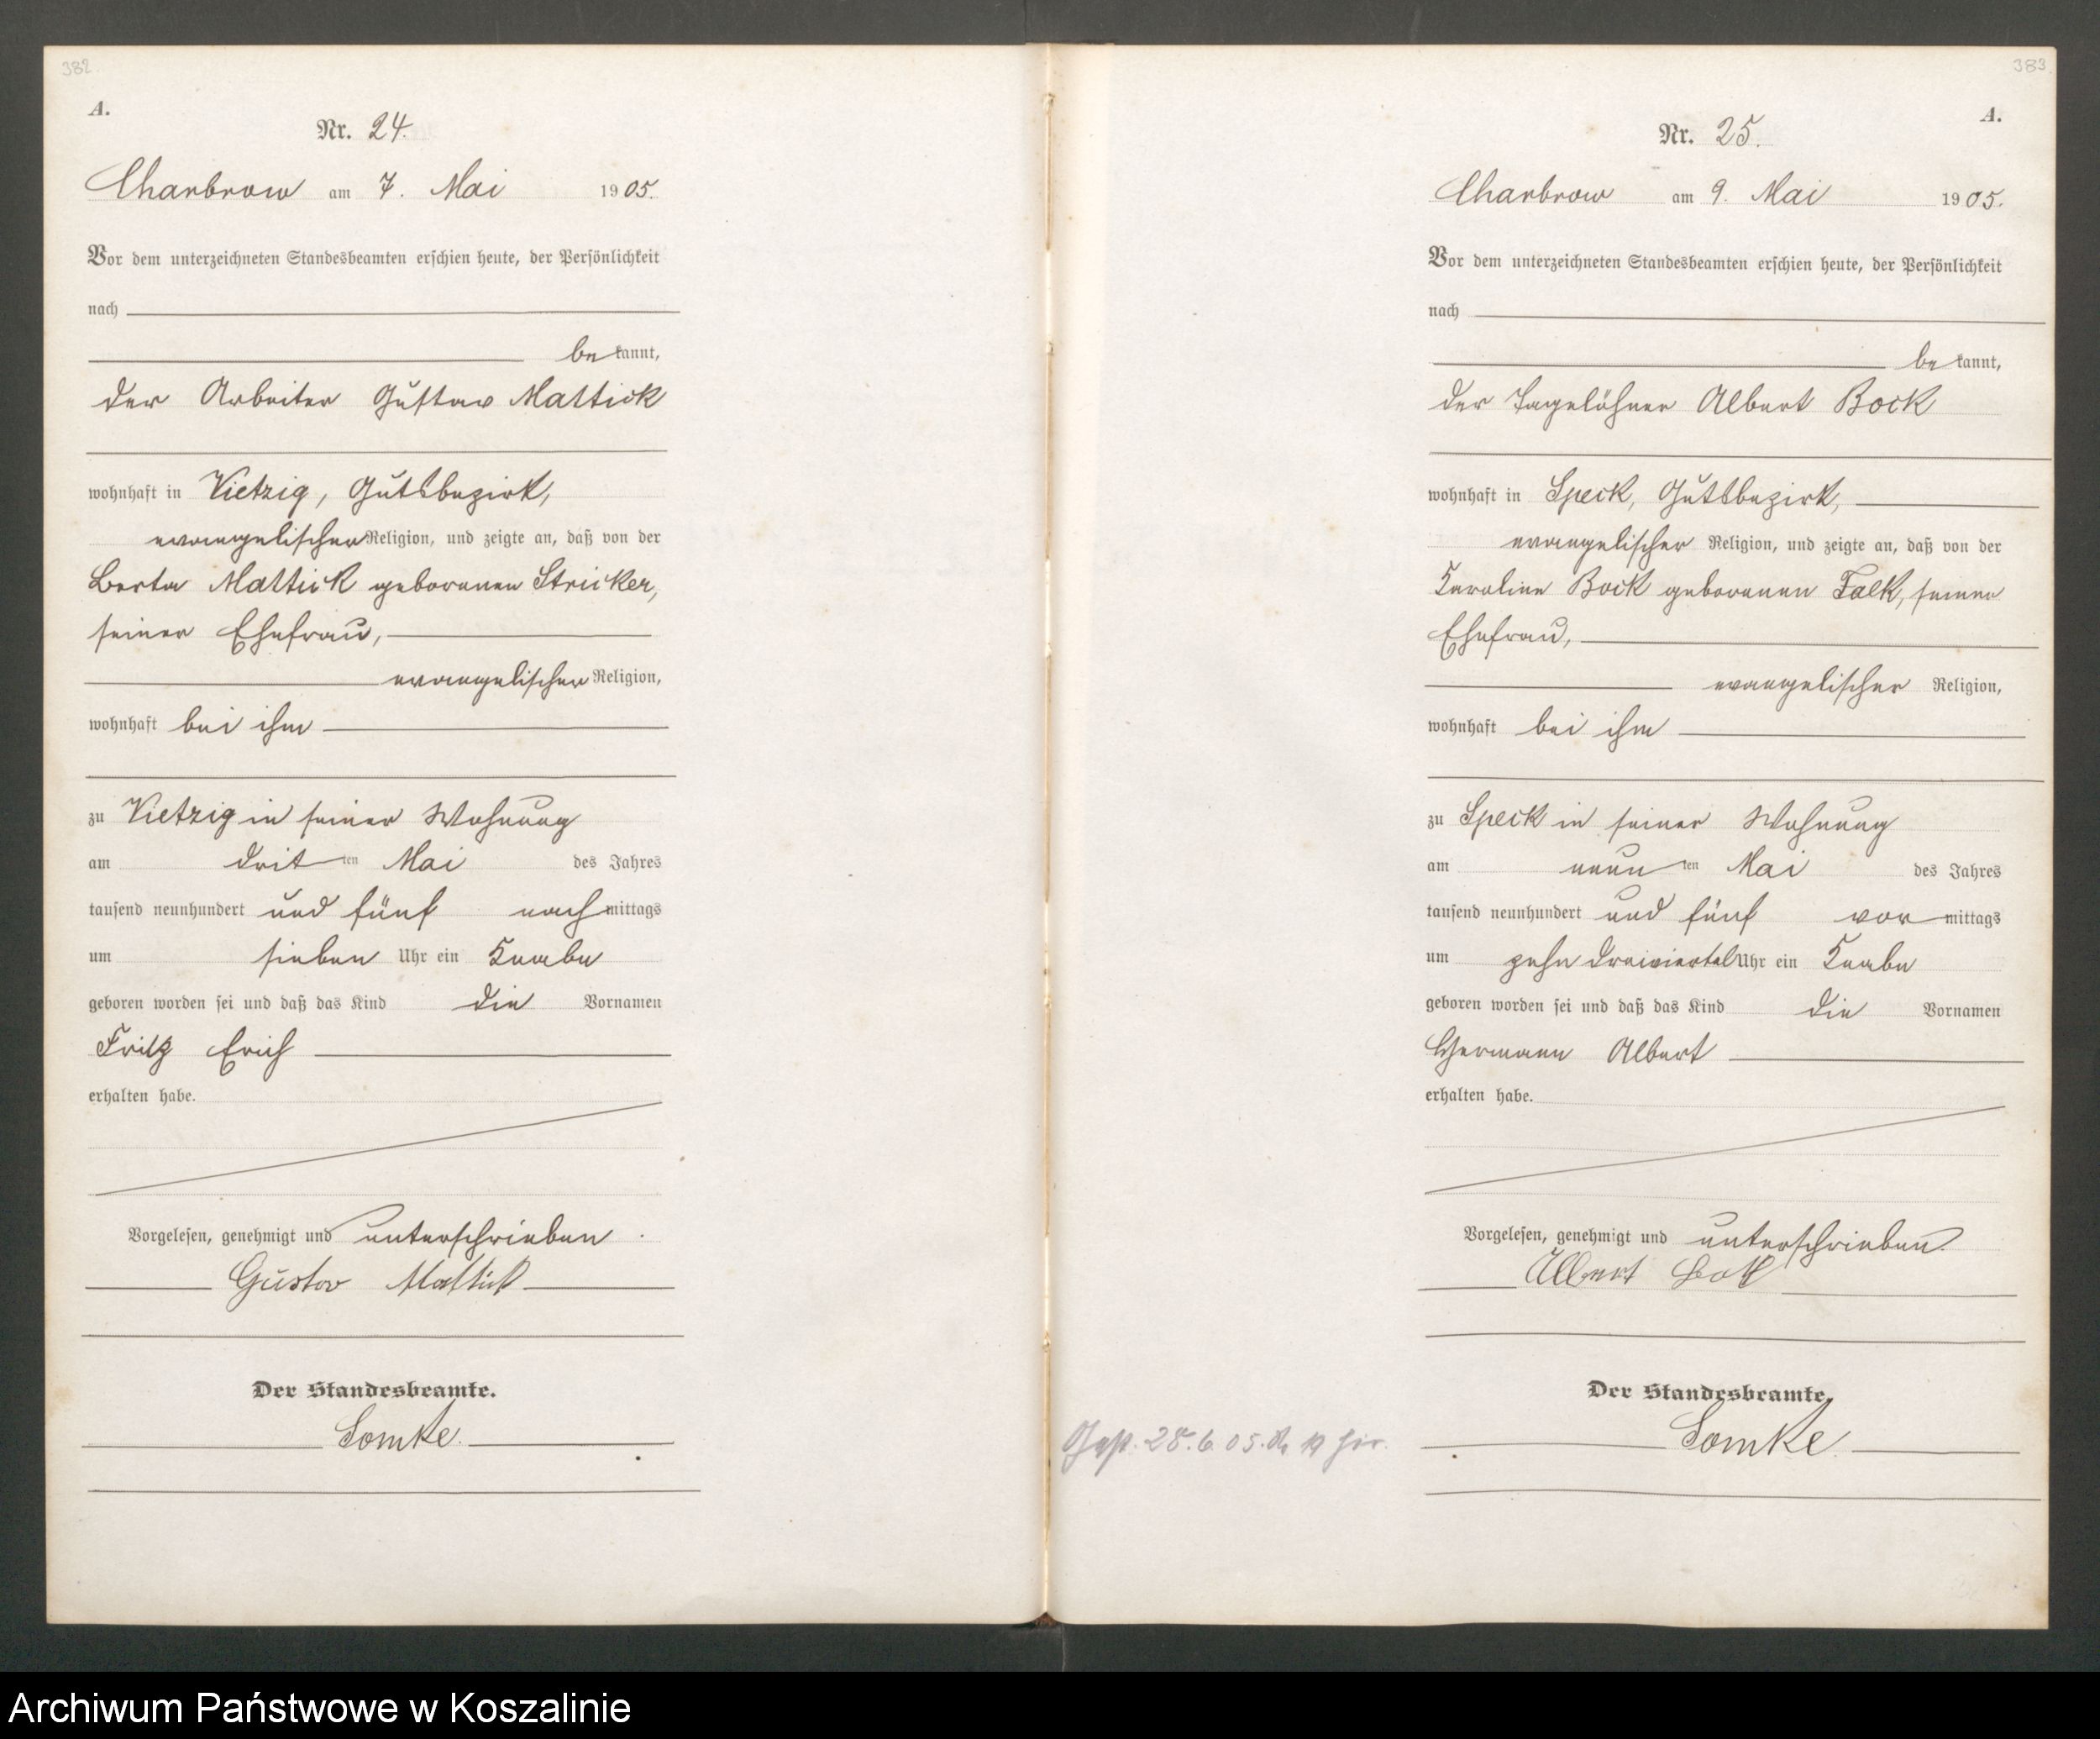 382.
A.
Nr. 24.
Charbrow am 7. Mai 1905.
Vor dem unterzeichneten Standesbeamten erschien heute, der Persönlichkeit
nach
bekannt,
der Arbeiter Gustav Mattick
wohnhaft in Vietzig, Gutsbezirk,
evangelischer Religion, und zeigte an, daß von der
Berta Mattick geborenen Stricker,
seiner Ehefrau,
evangelischer Religion,
wohnhaft bei ihm
zu Vietzig in seiner Wohnung
am dritten Mai des Jahres
tausend neunhundert und fünf nachmittags
um sieben Uhr ein Knabe
geboren worden sei und daß das Kind die Vornamen
Fritz Erich
erhalten habe.
Vorgelesen, genehmigt und unterschrieben
Gustav Mattick
Der Standesbeamte.
Lomke.
383.
A.
Nr. 25.
Charbrow am 9. Mai 1905.
Vor dem unterzeichneten Standesbeamten erschien heute, der Persönlichkeit
nach
bekannt,
der Tagelöhner Albert Bock
wohnhaft in Speck, Gutsbezirk,
evangelischer Religion, und zeigte an, daß von der
Karoline Bock geborenen Falk, seiner
Ehefrau,
evangelischer Religion,
wohnhaft bei ihm
zu Speck in seiner Wohnung
am neunten Mai des Jahres
tausend neunhundert und fünf vormittags
um zehn dreiviertel Uhr ein Knabe
geboren worden sei und daß das Kind die Vornamen
Hermann Albert
erhalten habe.
Vorgelesen, genehmigt und unterschrieben.
Albert Bock
Der Standesbeamte.
Lomke.
28.6.05.
Archiwum Państwowe w Koszalinie